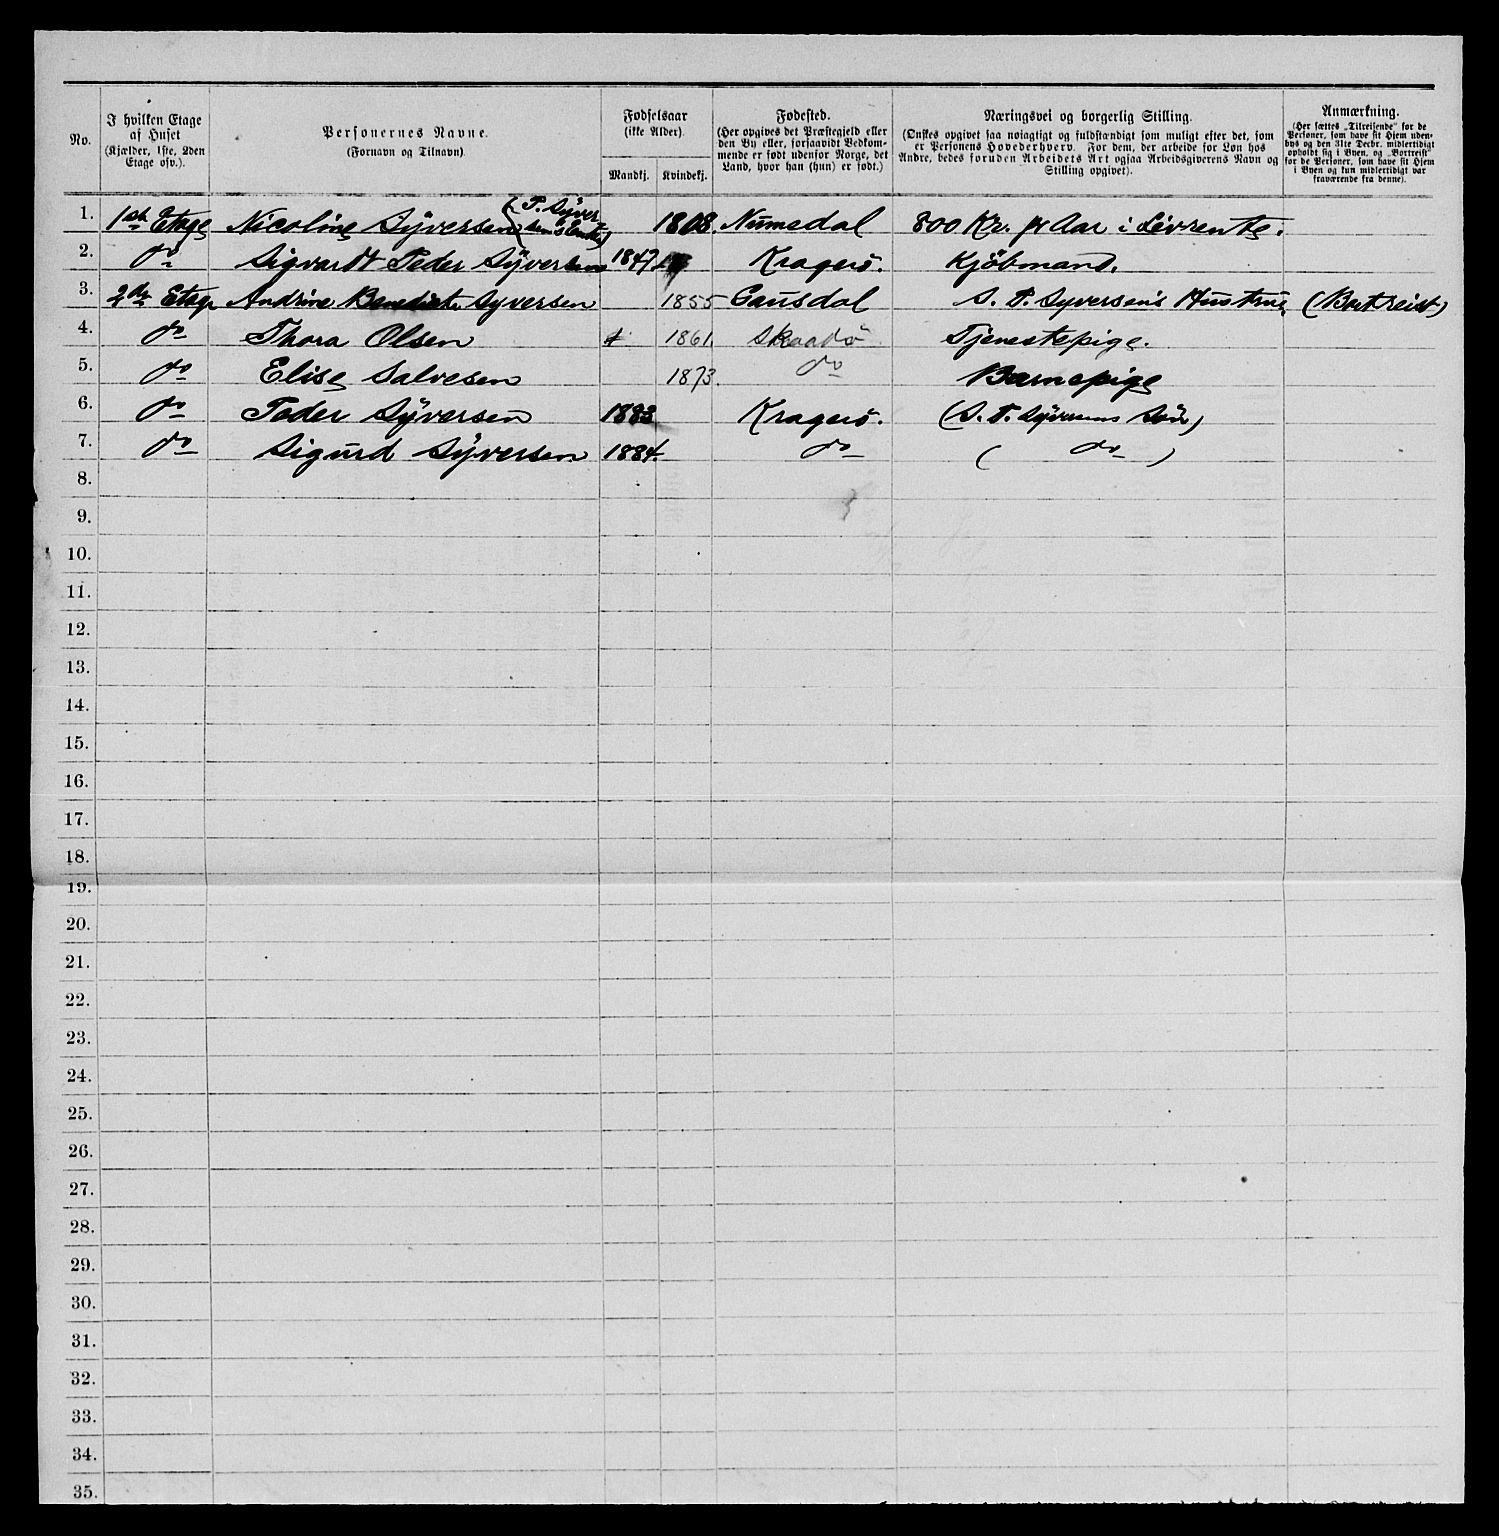 No.
I hvilken Etage af Huset (Kjælder, 1ste, 2den Etage osv.).
Personernes Navne. (Fornavn og Tilnavn)
Fødselsaar (ikke Alder).
Mandkj. Kvindekj.
Fødested. (Her opgives det Præstegjeld eller den By eller, forsaavidt Vedkommende er født udenfor Norge, det Land, hvor han (hun) er født.)
Næringsvei og borgerlig Stilling. (Ønskes opgivet saa nøiagtigt og fuldstændigt som muligt efter det, som er Personens Hovederhverv. For dem, der arbeide for Løn hos Andre, bedes foruden Arbeidets Art ogsaa Arbeidsgiverens Navn og Stilling opgivet).
Anmærkning. (Her sættes „Tilreisende" for de Personer, som have sit Hjem udenbys og den 31te Decbr. midlertidigt opholdt sig i Byen, og „Bortreist" for de Personer, som have sit Hjem i Byen og kun midlertidigt var fraværende fra denne).
1. 1ste Etage Nicoline Syversen (P. Syversens Enke) 1808. Numedal 800 Kr. pr Aar i Livrente.
2. do Sigvardt Peder Syversen 1847. Kragerø. Kjøbmand.
3. 2den Etage Andrine Benedicte Syversen 1855 Gausdal S. P. Syversen's Hustrue (Bortreist)
4. do Thora Olsen 1861. Skaadø Tjenestepige.
5. do Elise Salvesen 1873. do Barnepige
6. do Peder Syversen 1883 Kragerø. (S. P. Syversens Søn)
7. do Sigurd Syversen 1884. do ( do )
8.
9.
10.
11.
12.
13.
14.
15.
16.
17.
18.
19.
20.
21.
22.
23.
24.
25.
26.
27.
28.
29.
30.
31.
32.
33.
34.
35.